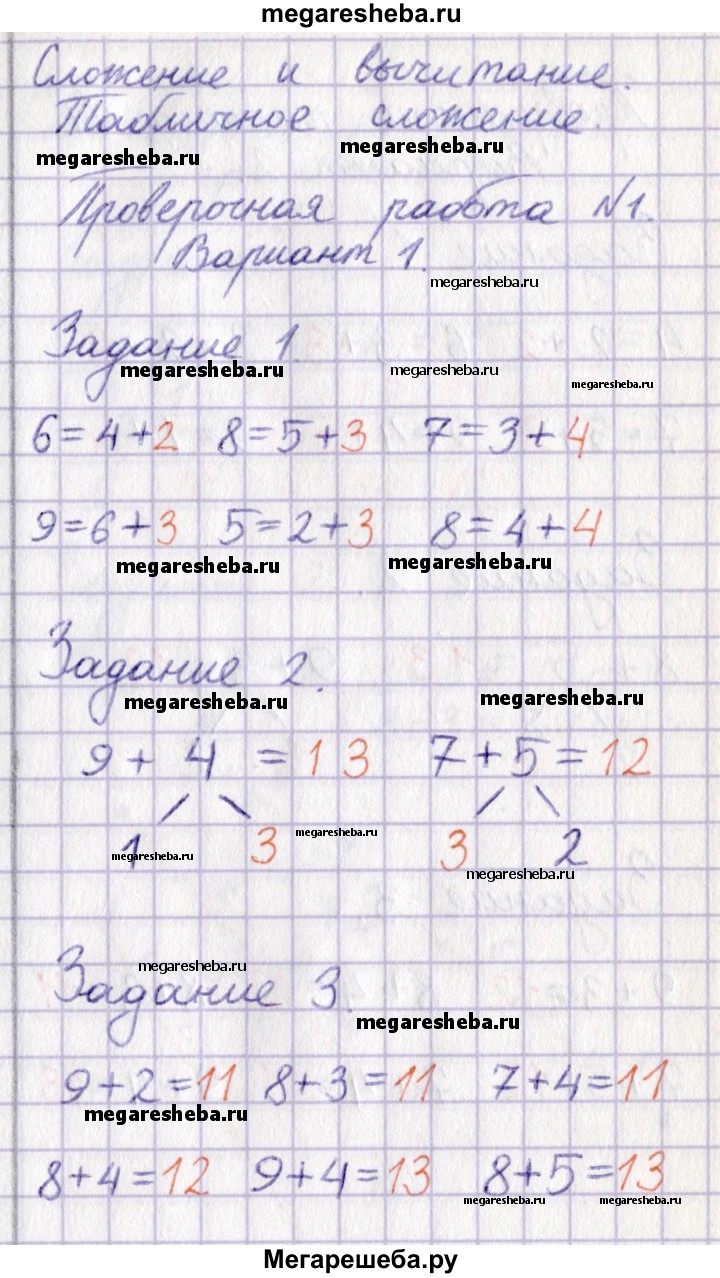 megaresheba.ru
Сложение и вычитание.
Табличное сложение.
megaresheba.ru megaresheba.ru
Проверочная работа №1.
Вариант 1.
megaresheba.ru
Задание 1.
megaresheba.ru megaresheba.ru megaresheba.ru
6=4+2 8=5+3 7=3+4
9=6+3 5=2+3 8=4+4
megaresheba.ru megaresheba.ru
Задание 2.
megaresheba.ru megaresheba.ru
9+4=13 7+5=12
1 3 3 2
megaresheba.ru megaresheba.ru megaresheba.ru
Задание 3.
megaresheba.ru
megaresheba.ru
9+2=11 8+3=11 7+4=11
megaresheba.ru
8+4=12 9+4=13 8+5=13
megaresheba.ru megaresheba.ru
Мегарешеба.ру